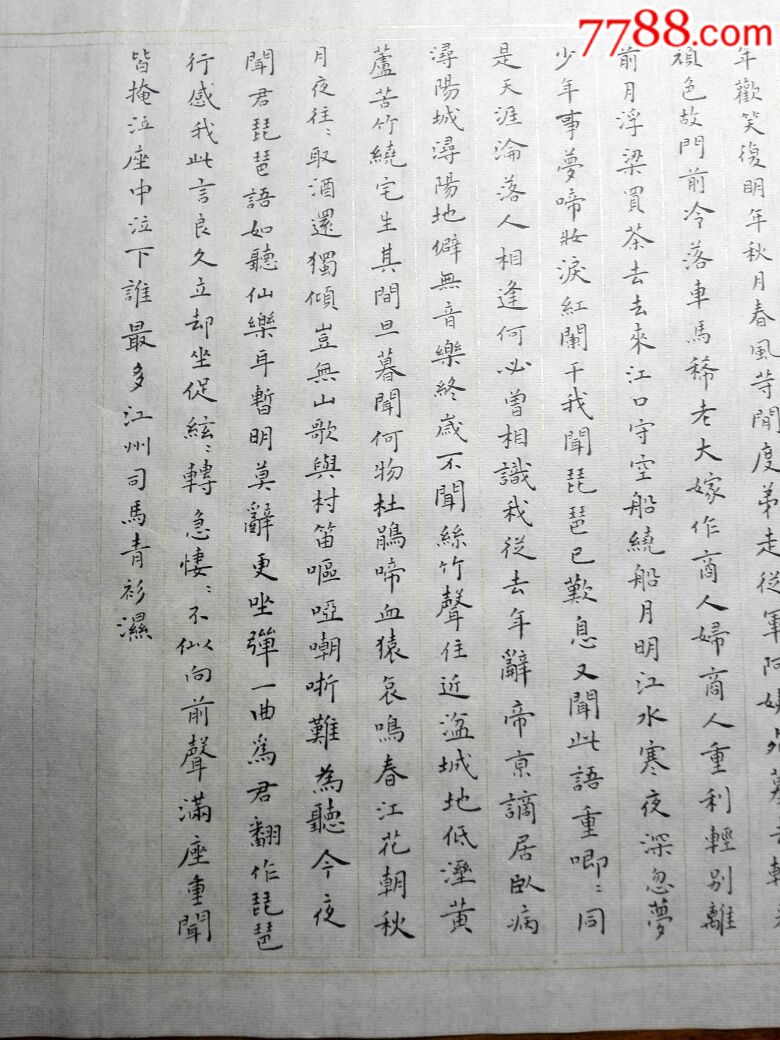 7788.com
年歡笑復明年秋月春風等閒度弟走従軍阿姨死暮去朝來
顔色故門前冷落車馬稀老大嫁作商人婦商人重利輕別離
前月浮梁買茶去去來江口守空船繞船月明江水寒夜深忽夢
少年事夢啼妝淚紅闌干我聞琵琶已歎息又聞此語重唧〻同
是天涯淪落人相逢何必曾相識我從去年辭帝京謫居臥病
潯陽城潯陽地僻無音樂終歲不聞絲竹聲住近湓城地低溼黃
蘆苦竹繞宅生其間旦暮聞何物杜鵑啼血猿哀鳴春江花朝秋
月夜往〻取酒還獨傾豈無山歌與村笛嘔啞嘲哳難為聽今夜
聞君琵琶語如聽仙樂耳暫明莫辭更坐彈一曲爲君翻作琵琶
行感我此言良久立却坐促絃〻轉急悽〻不似向前聲滿座重聞
皆掩泣座中泣下誰最多江州司馬青衫濕